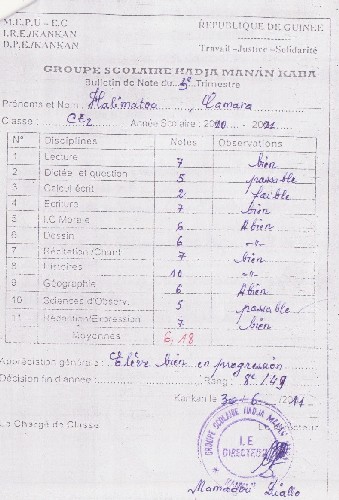 M.E.P.U – E.C
REPUBLIQUE DE GUINEE
I.R.E/KANKAN
D.P.E/KANKAN
Travail –Justice –Solidarité
GROUPE SCOLAIRE HADJA MANAN KABA
Bulletin de Note du 3è Trimestre
Prénoms et Nom : Halimatou Camara
Classe : CE2 Année Scolaire : 2010 - 2011
N° Disciplines Notes Observations
1 Lecture 7 bien
2 Dictée et question 5 passable
3 Calcul écrit 2 faible
4 Ecriture 7 bien
5 I.C Morale 6 Abien
6 Dessin 6 -"-
7 Récitation /Chant 7 bien
8 Histoires 10 -"-
9 Géographie 6 Abien
10 Sciences d'Observ. 5 passable
11 Rédaction/Expression 7 bien
Moyennes 6,18
Appréciation générale : Elève bien en progression
Décision fin d'année : Rang : 8è /49
Kankan le 30 / 6 / 2011
La Chargé de Classe
GROUPE SCOLAIRE HADJA MANAN
I.E
DIRECTEUR
Mamadou Diallo